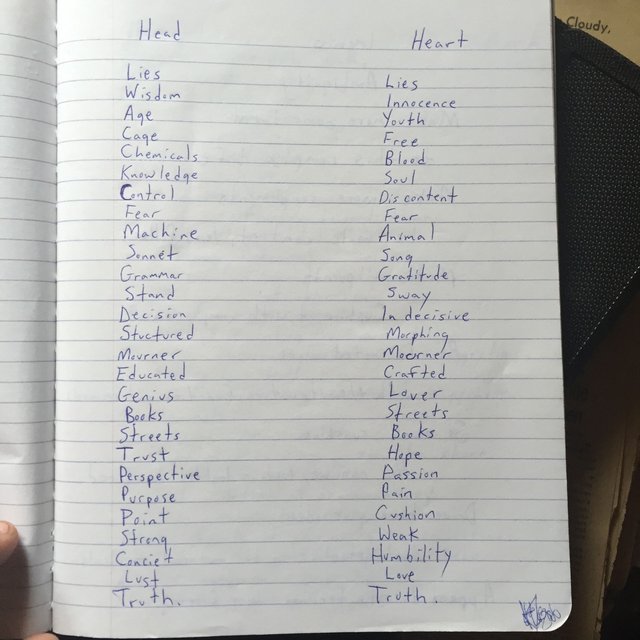 Cloudy,
Head Heart
Lies Lies
Wisdom Innocence
Age Youth
Cage Free
Chemicals Blood
Knowledge Soul
Control Discontent
Fear Fear
Machine Animal
Sonnet Song
Grammar Gratitude
Stand Sway
Decision In decisive
Stuctured Morphing
Mourner Mourner
Educated Crafted
Genius Lover
Books Streets
Streets Books
Trust Hope
Perspective Passion
Purpose Pain
Point Cushion
Strong Weak
Conciet Humbility
Lust Love
Truth. Truth.